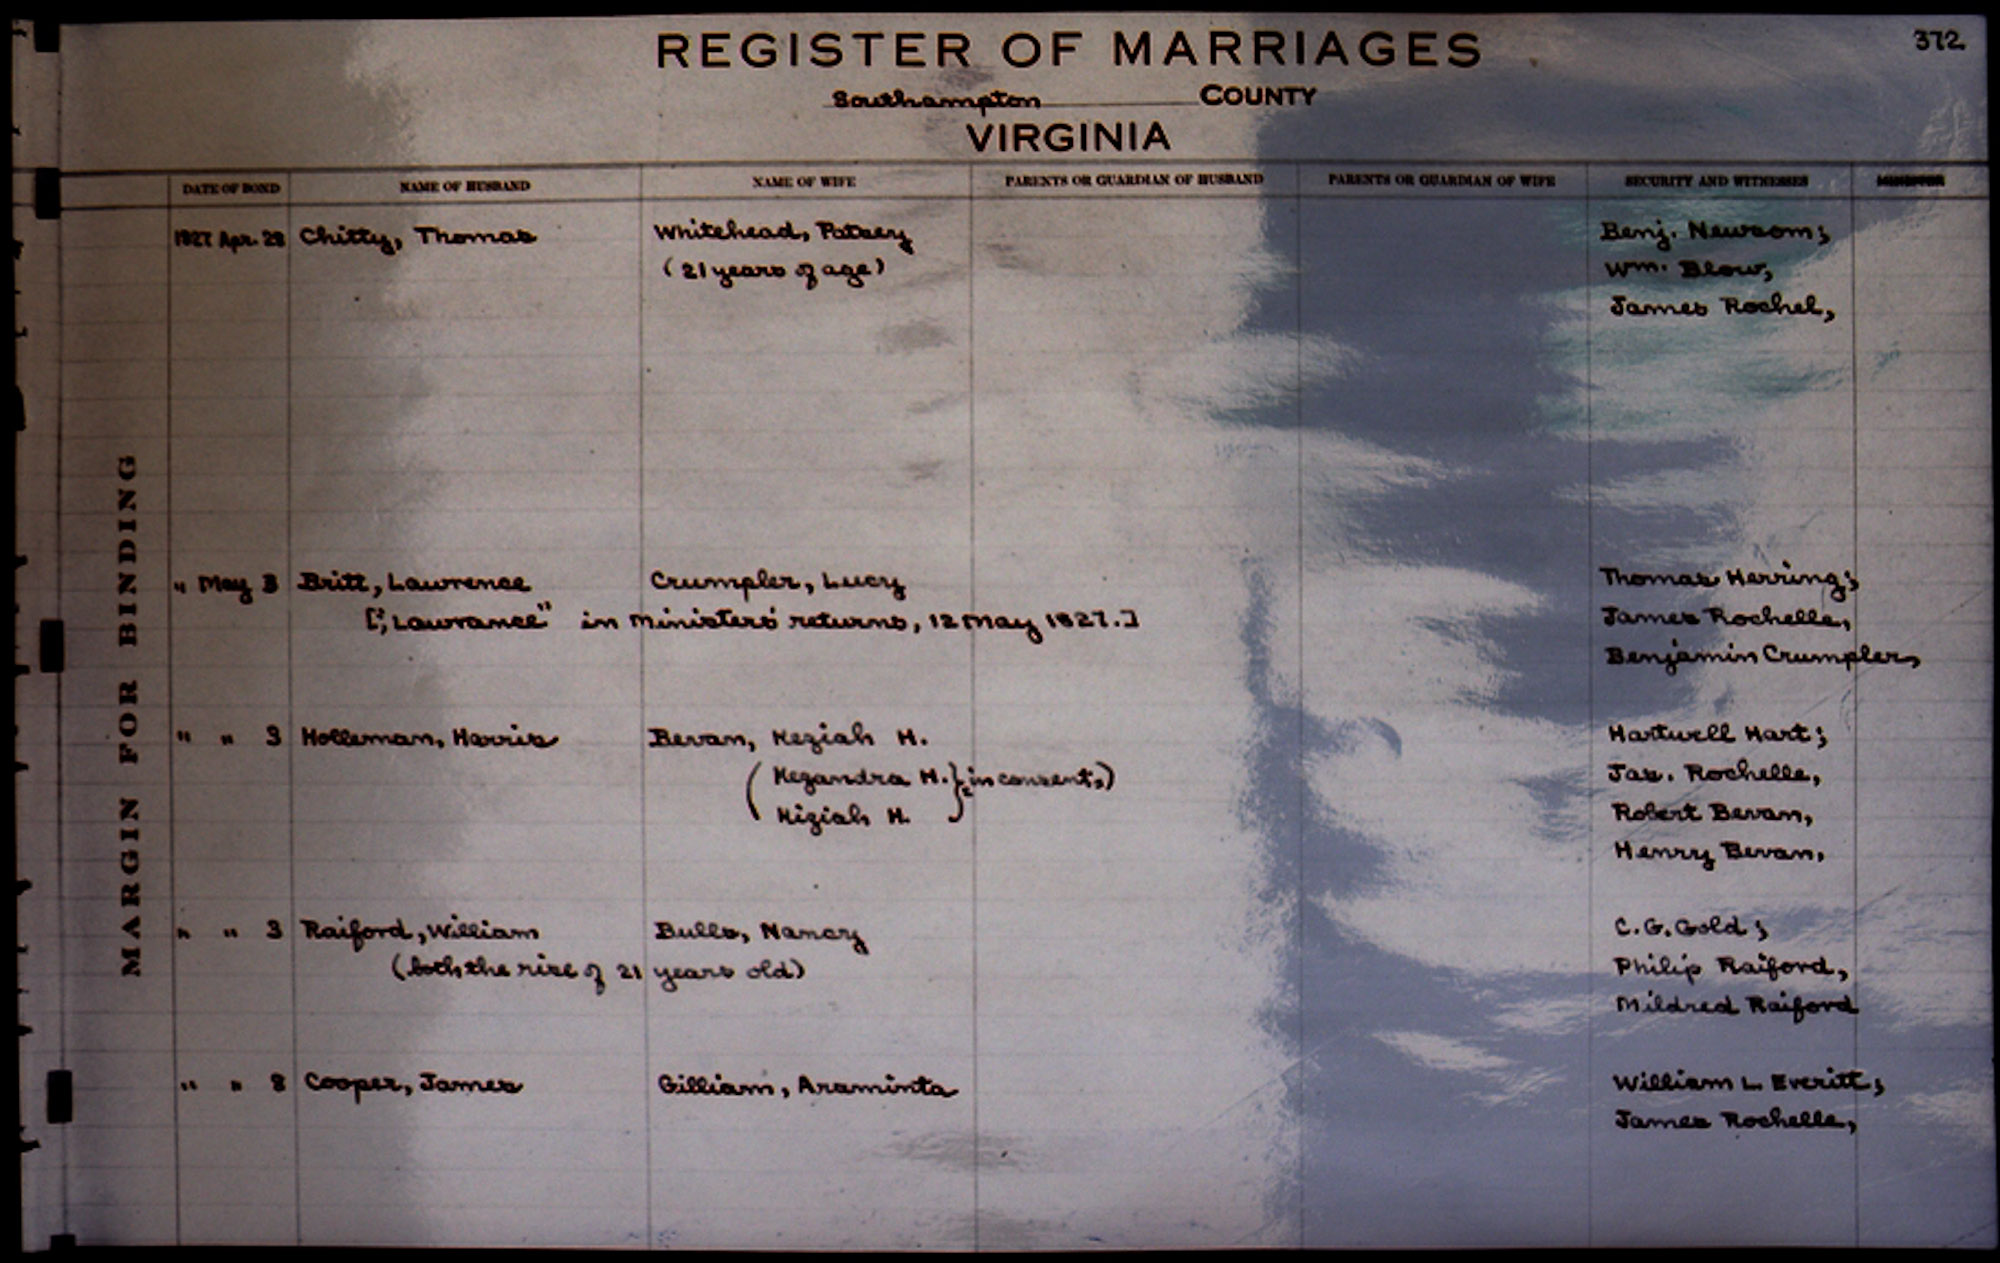 372
REGISTER OF MARRIAGES
Southampton COUNTY
VIRGINIA
DATE OF BOND NAME OF HUSBAND NAME OF WIFE PARENTS OR GUARDIAN OF HUSBAND PARENTS OR GUARDIAN OF WIFE SECURITY AND WITNESSES MINISTER
1827 Apr. 28 Chitty, Thomas Whitehead, Patsey Benj. Newsom;
(21 years of age) Wm. Blow,
James Rochel,
" May 3 Britt, Lawrence Crumpler, Lucy Thomas Herring;
[; Lawrance" in Ministers' returns, 12 May 1827.] James Rochelle,
Benjamin Crumpler,
" " 3 Holleman, Harris Bevan, Keziah H. Hartwell Hart;
(Kezandra H.}, in consents) Jas. Rochelle,
Kiziah H. Robert Bevan,
Henry Bevan,
" " 3 Raiford, William Bulls, Nancy C. G. Gold;
(both the rise of 21 years old) Philip Raiford,
Mildred Raiford
" " 8 Cooper, James Gilliam, Araminta William L. Everitt;
James Rochelle,
MARGIN FOR BINDING